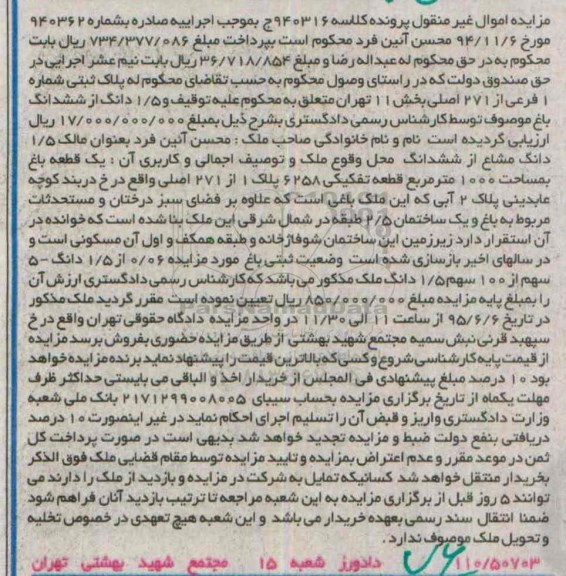 مزایده اموال غیر منقول پرونده کلاسه ۹۴۰۳۱۶ج بموجب اجراییه صادره بشماره ۹۴۰۳۶۲
مورخ ۹۴/۱۱/۶ محسن آئین فرد محکوم است بپرداخت مبلغ ۷۳۴/۳۷۷/۰۸۶ ریال بابت
محکوم به در حق محکوم له عبداله رضا و مبلغ ۳۶/۷۱۸/۸۵۴ ریال بابت نیم عشر اجرایی در
حق صندوق دولت که در راستای وصول محکوم به حسب تقاضای محکوم له پلاک ثبتی شماره
۱ فرعی از ۲۷۱ اصلی بخش ۱۱ تهران متعلق به محکوم علیه توقیف و ۱/۵ دانگ از ششدانگ
باغ موصوف توسط کارشناس رسمی دادگستری بشرح ذیل بمبلغ ۱۷/۰۰۰/۰۰۰/۰۰۰ ریال
ارزیابی گردیده است نام و نام خانوادگی صاحب ملک : محسن آئین فرد بعنوان مالک ۱/۵
دانگ مشاع از ششدانگ محل وقوع ملک و توصیف اجمالی و کاربری آن : یک قطعه باغ
بمساحت ۱۰۰۰ مترمربع قطعه تفکیکی ۶۲۵۸ پلاک ۱ از ۲۷۱ اصلی واقع در خ دربند کوچه
عابدینی پلاک ۲ آبی که این ملک باغی است که علاوه بر فضای سبز درختان و مستحدثات
مربوط به باغ و یک ساختمان ۲/۵ طبقه در شمال شرقی این ملک بنا شده است که خوانده در
آن استقرار دارد زیرزمین این ساختمان شوفاژخانه و طبقه همکف و اول آن مسکونی است و
در سالهای اخیر بازسازی شده است وضعیت ثبتی باغ مورد مزایده ۰/۰۶ از ۱/۵ دانگ -۵
سهم از ۱۰۰ سهم ۱/۵ دانگ ملک مذکور می باشد که کارشناس رسمی دادگستری ارزش آن
را بمبلغ پایه مزایده مبلغ ۸۵۰/۰۰۰/۰۰۰ ریال تعیین نموده است مقرر گردید ملک مذکور
در تاریخ ۹۵/۶/۶ از ساعت ۱۱ الی ۱۱/۳۰ در واحد مزایده دادگاه حقوقی تهران واقع در خ
سپهبد قرنی نبش سمیه مجتمع شهید بهشتی از طریق مزایده حضوری بفروش برسد مزایده
از قیمت پایه کارشناسی شروع و کسی که بالاترین قیمت را پیشنهاد نماید برنده مزایده خواهد
بود ۱۰ درصد مبلغ پیشنهادی فی المجلس از خریدار اخذ و الباقی می بایستی حداکثر ظرف
مهلت یکماه از تاریخ برگزاری مزایده بحساب سیبای ۲۱۷۱۲۹۹۰۰۸۰۰۵ بانک ملی شعبه
وزارت دادگستری واریز و قبض آن را تسلیم اجرای احکام نماید در غیر اینصورت ۱۰ درصد
دریافتی بنفع دولت ضبط و مزایده تجدید خواهد شد بدیهی است در صورت پرداخت کل
ثمن در موعد مقرر و عدم اعتراض بمزایده و تایید مزایده توسط مقام قضایی ملک فوق الذکر
بخریدار منتقل خواهد شد کسانیکه تمایل به شرکت در مزایده و بازدید از ملک را دارند می
توانند ۵ روز قبل از برگزاری مزایده به این شعبه مراجعه تا ترتیب بازدید آنان فراهم شود
ضمنا انتقال سند رسمی بعهده خریدار می باشد و این شعبه هیچ تعهدی در خصوص تخلیه
و تحویل ملک موصوف ندارد.
۱۱۰/۵۰۷۰۳ دادورز شعبه ۱۵ مجتمع شهید بهشتی تهران